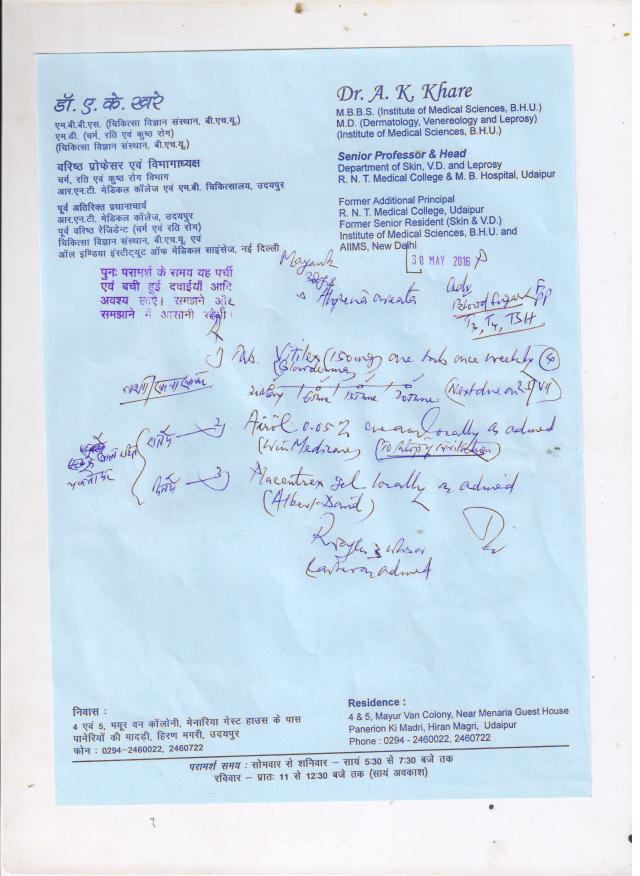 डॉ. ए. के. खरे
एम.बी.बी.एस. (चिकित्सा विज्ञान संस्थान, बी.एच.यू.)
एम.डी. (चर्म, रति एवं कुष्ठ रोग)
(चिकित्सा विज्ञान संस्थान, बी.एच.यू.)
वरिष्ठ प्रोफेसर एवं विभागाध्यक्ष
चर्म, रति एवं कुष्ठ रोग विभाग
आर.एन.टी. मेडिकल कॉलेज एवं एम.बी. चिकित्सालय, उदयपुर
पूर्व अतिरिक्त प्रधानाचार्य
आर.एन.टी. मेडिकल कॉलेज, उदयपुर
पूर्व वरिष्ठ रेजिडेन्ट (चर्म एवं रति)
चिकित्सा विज्ञान संस्थान, बी.एच.यू. एवं
ऑल इण्डिया इंस्टीट्यूट ऑफ मेडिकल साइंसेज, नई दिल्ली
Dr. A. K. Khare
M.B.B.S. (Institute of Medical Sciences, B.H.U.)
M.D. (Dermatology, Venereology and Leprosy)
(Institute of Medical Sciences, B.H.U.)
Senior Professor & Head
Department of Skin, V.D. and Leprosy
R. N. T. Medical College & M. B. Hospital, Udaipur
Former Additional Principal
R. N. T. Medical College, Udaipur
Former Senior Resident (Skin & V.D.)
Institute of Medical Sciences, B.H.U. and
AIIMS, New Delhi
पुनः परामर्श के समय यह पर्ची
एवं बची हुई दवाईयाँ आदि
अवश्य लाऐं। समझने और
समझाने में आसानी रहेगी।
Mayank
30 MAY 2016
Adv
Alopecia areata
Blood Sugar F
PP
T3, T4, TSH
1) Tab. Vitilex (150mg) one tab once weekly
2) Airol 0.05% cream locally as advised
(Win Medicare)
3) Macentrex gel locally as advised
(Albert David)
as advised
निवास :
4 एवं 5, मयूर वन कॉलोनी, मेनारिया गेस्ट हाउस के पास
पानेरियों की मादड़ी, हिरण मगरी, उदयपुर
फोन : 0294-2460022, 2460722
Residence :
4 & 5, Mayur Van Colony, Near Menaria Guest House
Panerion Ki Madri, Hiran Magri, Udaipur
Phone : 0294 - 2460022, 2460722
परामर्श समय : सोमवार से शनिवार – सायं 5:30 से 7:30 बजे तक
रविवार – प्रातः 11 से 12:30 बजे तक (सायं अवकाश)